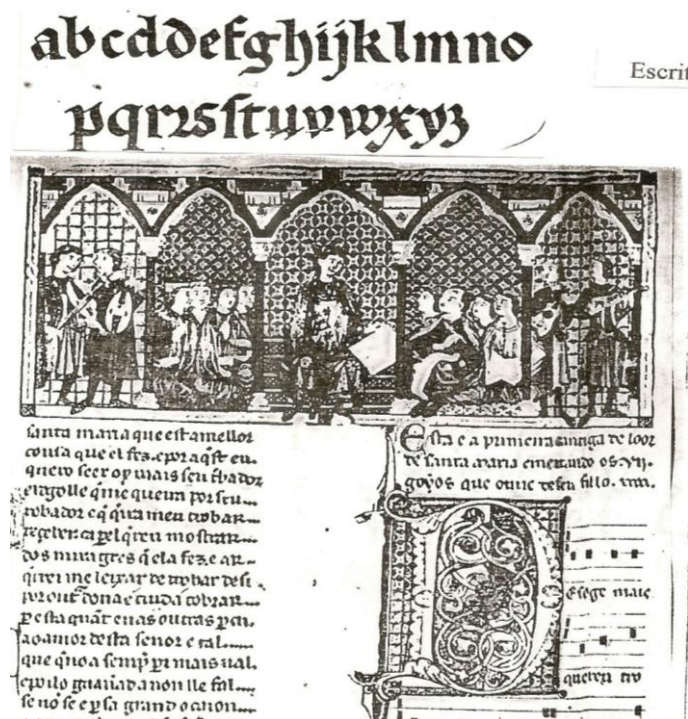 abcddefghijklmno
pqrr sſtuvwxyz
Escrit
santa maria que est a mellor
cousa que el fez. e por aqſt eu.
quero seer oy mais seu trobador
e rogolle q me queira por seu
trobador e q queira meu trobar
reçeber. ca per el qreu mostrar
dos miragres q ela fez. e ar
qrrei me leixar de trobar desi
por out dona e cuida cobrar
per esta quant enas outras perdi
ao amor desta senor e tal
que qno a semp per i mais ual.
e poi lo gaannad a non lle fal
se no se e per sa grand ocaion
Esta e a primeira cantiga de loor
de santa maria ementando os .vii.
goyos que ouue de seu fillo.
D
Esoge mais
quereu tro